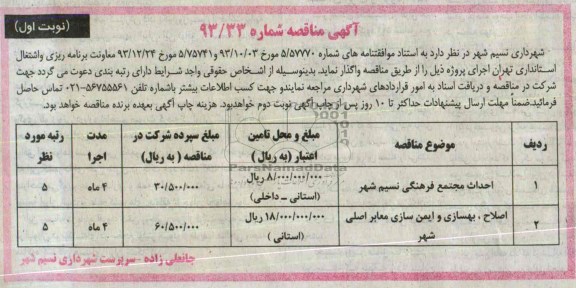 (نوبت اول)
آگهی مناقصه شماره ۹۳/۳۳
شهرداری نسیم شهر در نظر دارد به استناد موافقتنامه های شماره ۵/۵۷۷۷۰ مورخ ۹۳/۱۰/۰۳ و ۵/۷۵۷۴۱ مورخ ۹۳/۱۲/۲۴ معاونت برنامه ریزی واشتغال
استانداری تهران اجرای پروژه ذیل را از طریق مناقصه واگذار نماید. بدینوسیله از اشخاص حقوقی واجد شرایط دارای رتبه بندی دعوت می گردد جهت
شرکت در مناقصه و دریافت اسناد به امور قراردادهای شهرداری مراجعه نمایندو جهت کسب اطلاعات بیشتر باشماره تلفن ۵۶۷۵۵۵۶۱-۰۲۱ تماس حاصل
فرمائید.ضمناً مهلت ارسال پیشنهادات حداکثر تا ۱۰ روز پس از چاپ آگهی نوبت دوم خواهدبود. هزینه چاپ آگهی بعهده برنده مناقصه خواهد بود.
ردیف موضوع مناقصه مبلغ و محل تامین اعتبار (به ریال) مبلغ سپرده شرکت در مناقصه ( به ریال) مدت اجرا رتبه مورد نظر
۱ احداث مجتمع فرهنگی نسیم شهر ۸/۰۰۰/۰۰۰/۰۰۰ ریال (استانی – داخلی) ۳۰/۵۰۰/۰۰۰ ۴ ماه ۵
۲ اصلاح ، بهسازی و ایمن سازی معابر اصلی شهر ۱۸/۰۰۰/۰۰۰/۰۰۰ ریال (استانی ) ۶۰/۵۰۰/۰۰۰ ۴ ماه ۵
جانعلی زاده - سرپرست شهرداری نسیم شهر
ParsNamadData